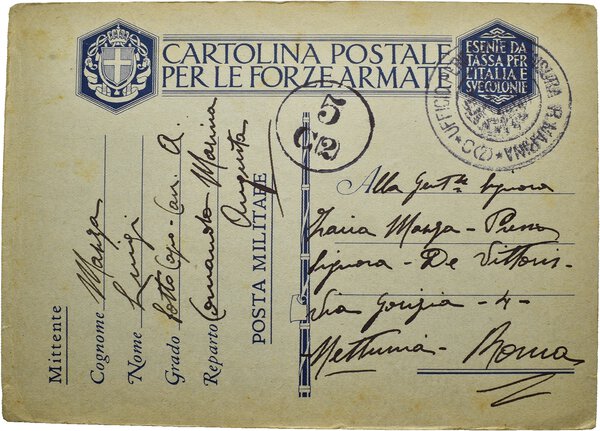 CARTOLINA POSTALE
PER LE FORZE ARMATE
ESENTE DA
TASSA PER
L'ITALIA E
SVE COLONIE
UFFICIO CENSURA R. MARINA
(2)
5
C2
Mittente
Cognome Manza
Nome Luigi
Grado Sotto Capo Can. A.
Reparto Comando Marina
Augusta
POSTA MILITARE
Alla Gent. Signora
Manza - Presso
Signora - De Vittoris -
Via Gorizia - 4 -
Nettunia - Roma